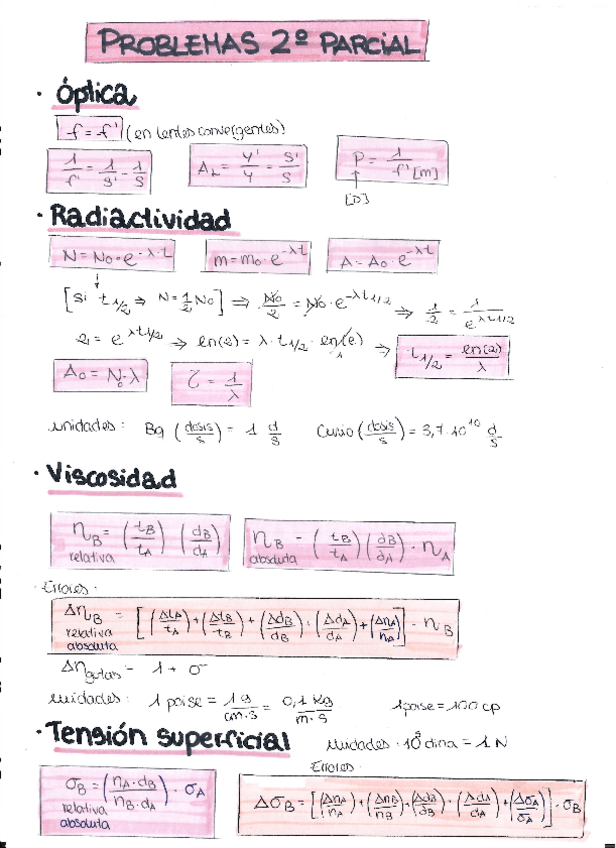 PROBLEMAS 2º PARCIAL
· óptica
f = f' (en lentes convergentes)
1/f' = 1/s' - 1/s    A_L = y'/y = s'/s    P = 1/f' [m]
[D]
· Radiactividad
N = N₀·e^-λ·t    m = m₀·e^-λ·t    A = A₀·e^-λt
[si t1/2 ⇒ N = 1/2 N₀] ⇒ N₀/2 = N₀·e^-λt1/2 ⇒ 1/2 = 1/e^λt1/2
2 = e^λt1/2 ⇒ ln(2) = λ·t1/2·ln(e) ⇒ t1/2 = ln(2)/λ
1
A₀ = N₀·λ    τ = 1/λ
unidades: Bq (dosis/s) = 1 d/s    Curio (dosis/s) = 3,7·10¹⁰ d/s
· Viscosidad
η_B = (t_B/t_A) (d_B/d_A)    η_B = (t_B/t_A)(d_B/d_A)·η_A
relativa    absoluta
· Errores·
Δη_B = [(Δt_A/t_A)+(Δt_B/t_B)+(Δd_B/d_B)+(Δd_A/d_A)+(Δη_A/η_A)]·η_B
relativa
absoluta
Δn gotas = 1 + σ
unidades: 1 poise = 1 g/cm·s = 0,1 kg/m·s    1 poise = 100 cp
· Tensión superficial    Unidades· 10⁵ dina = 1 N
Errores·
σ_B = (n_A·d_B/n_B·d_A)·σ_A    Δσ_B = [(Δn_A/n_A)+(Δn_B/n_B)+(Δd_B/d_B)+(Δd_A/d_A)+(Δσ_A/σ_A)]·σ_B
relativa
absoluta